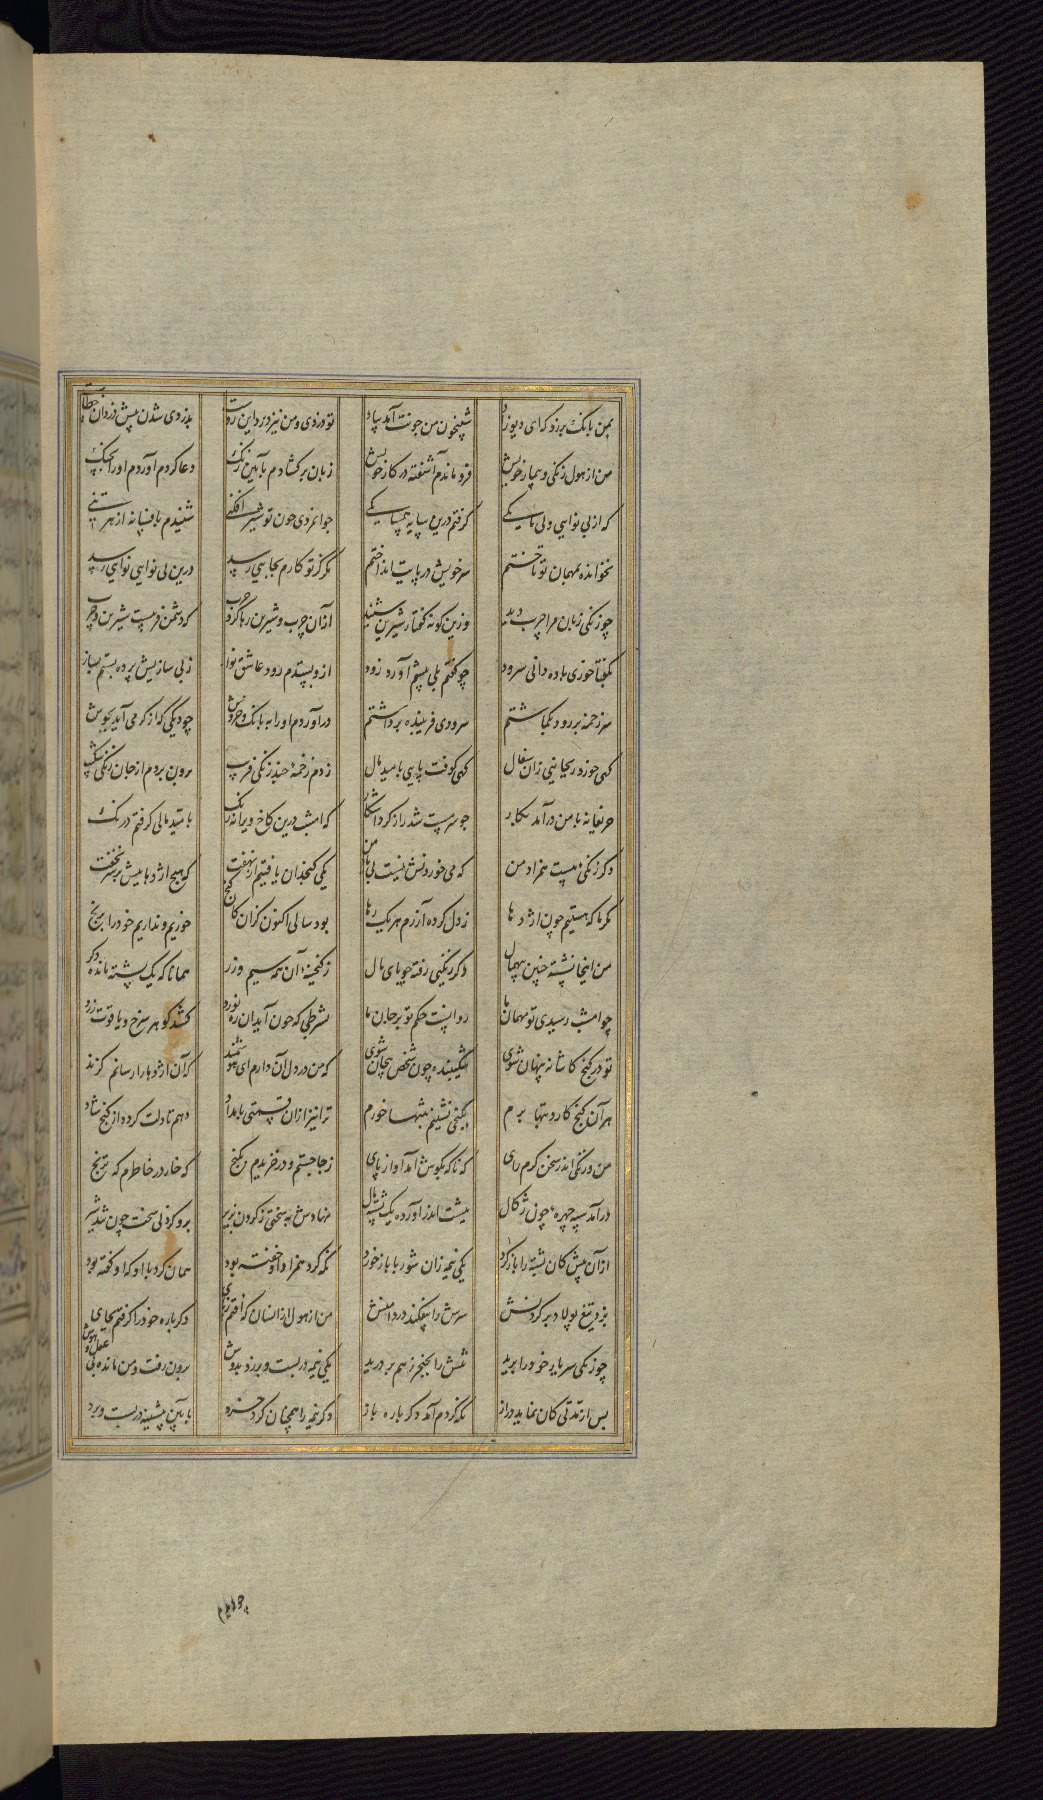 بمن بانک برزد که ای دیوزاد شبیخون من چونت آمد بیاد تو دزدی و من نیز دزد این رواست بدزدی شدن پیش دزدان خطاست
من از هول زنگی و تیمار خویش فرو ماندم آشفته در کار خویش زبان برکشادم بآیین زنک دعا کردم آوردم او را بچنک
که از بی نوایی و بی مایکی گرفتم درین سایه همسایکی جوانمردی چون تو شیر افکنی شنیدم بافسانه از هر تنی
نخوانده بمهمان تو تاختم سر خویش در پایت انداختم مکر کز تو کارم بجایی رسد درین بی نوایی نوایی رسد
چو زنکی زبان مرا چرب دید وزین کونه گفتار شیرین شنید از آن چرب و شیرین رها کرد حرب که دشمن فریبست شیرین و چرب
بگفتا خوری باده دانی سرود چو گفتم بلی پیشم آورد زود ازو بستدم رود عاشق نواز ز بی سازیش پرده بستم بساز
سر زخمه بر رود بگماشتم سرودی فریبنده برداشتم درآوردم او را به بانک و خروش چو دیکی که از کرمی آید بجوش
کهی خورد ریحانیی زان سفال کهی کوفت پایی بامید مال زدم زخمه چند زنکی فریب برون بردم از جان زنکی شکیب
حریفانه با من درآمد بکار چو سرمست شد راز کرد آشکار که امشب درین کاخ ویرانه رنک بامید مالی گرفتم درنک
دکر زنکی هست همزاد من که می خوردنش نیست بی یاد من یکی گنجدان یافتیم از نهفت که هیچ اژدها بیش بر سر نخفت
مکر ما که هستیم چون اژدها ز دل کرده آزرم هر یک رها بود سالی اکنون کزان کان گنج خوریم و نداریم خود را برنج
من اینجا نشسته چنین بیهمال دکر زنکیی رفته جویای مال ز گنجینه آن همه سیم و زر همانا که یک پشته مانده دکر
چو امشب رسیدی تو مهمان ما روانست حکم تو بر جان ما بشرطی که چون آید آن ره نورد کشد گوهر سرخ و یاقوت زرد
تو در کنج کاشانه پنهان شوی شکیبنده چون شخص بیجان شوی که من در دل آن دارم ای هوشمند که آن اژدها را رسانم گزند
هر آن گنج کارد بتنها برم بکنجی نشینم بتنها خورم ترا نیز از آن قسمتی بامداد دهم تا دلت کردد از گنج شاد
من و زنگی اندر سخن گرم رای که ناکه بگوش آمد آواز پای ز جا جستم و در خزیدم بکنج که خار در خاطرم که ترنج
درآمد سیه چهره چون زکال بپشت اندر آورده یک پشته مال نهادش به سختی ز گردن بزیر برو کرد بی سخت چون شد دلیر
از آن پیش کان پشته را باز کرد یکی نیمه زان شوربا باز خورد نکه کرد همزاد او خفته بود همان کرد با او که او گفته بود
بزد تیغ پولاد بر گردنش سرش را بیفکند در دامنش من از هول از انسان که افتم ز پای دکرباره خود را گرفتم بجای
چو زنکی سر یار خود را برید تنش را بخنجر ز هم بر درید یکی نیمه دربست و برزد بدوش برون رفت و من مانده بی عقل و هوش
پس از مدتی کان نماید دراز بکه کردم آمد دکرباره باز دکر نیمه را همچنان کرد خرد بآیین پیشینه دربست و برد